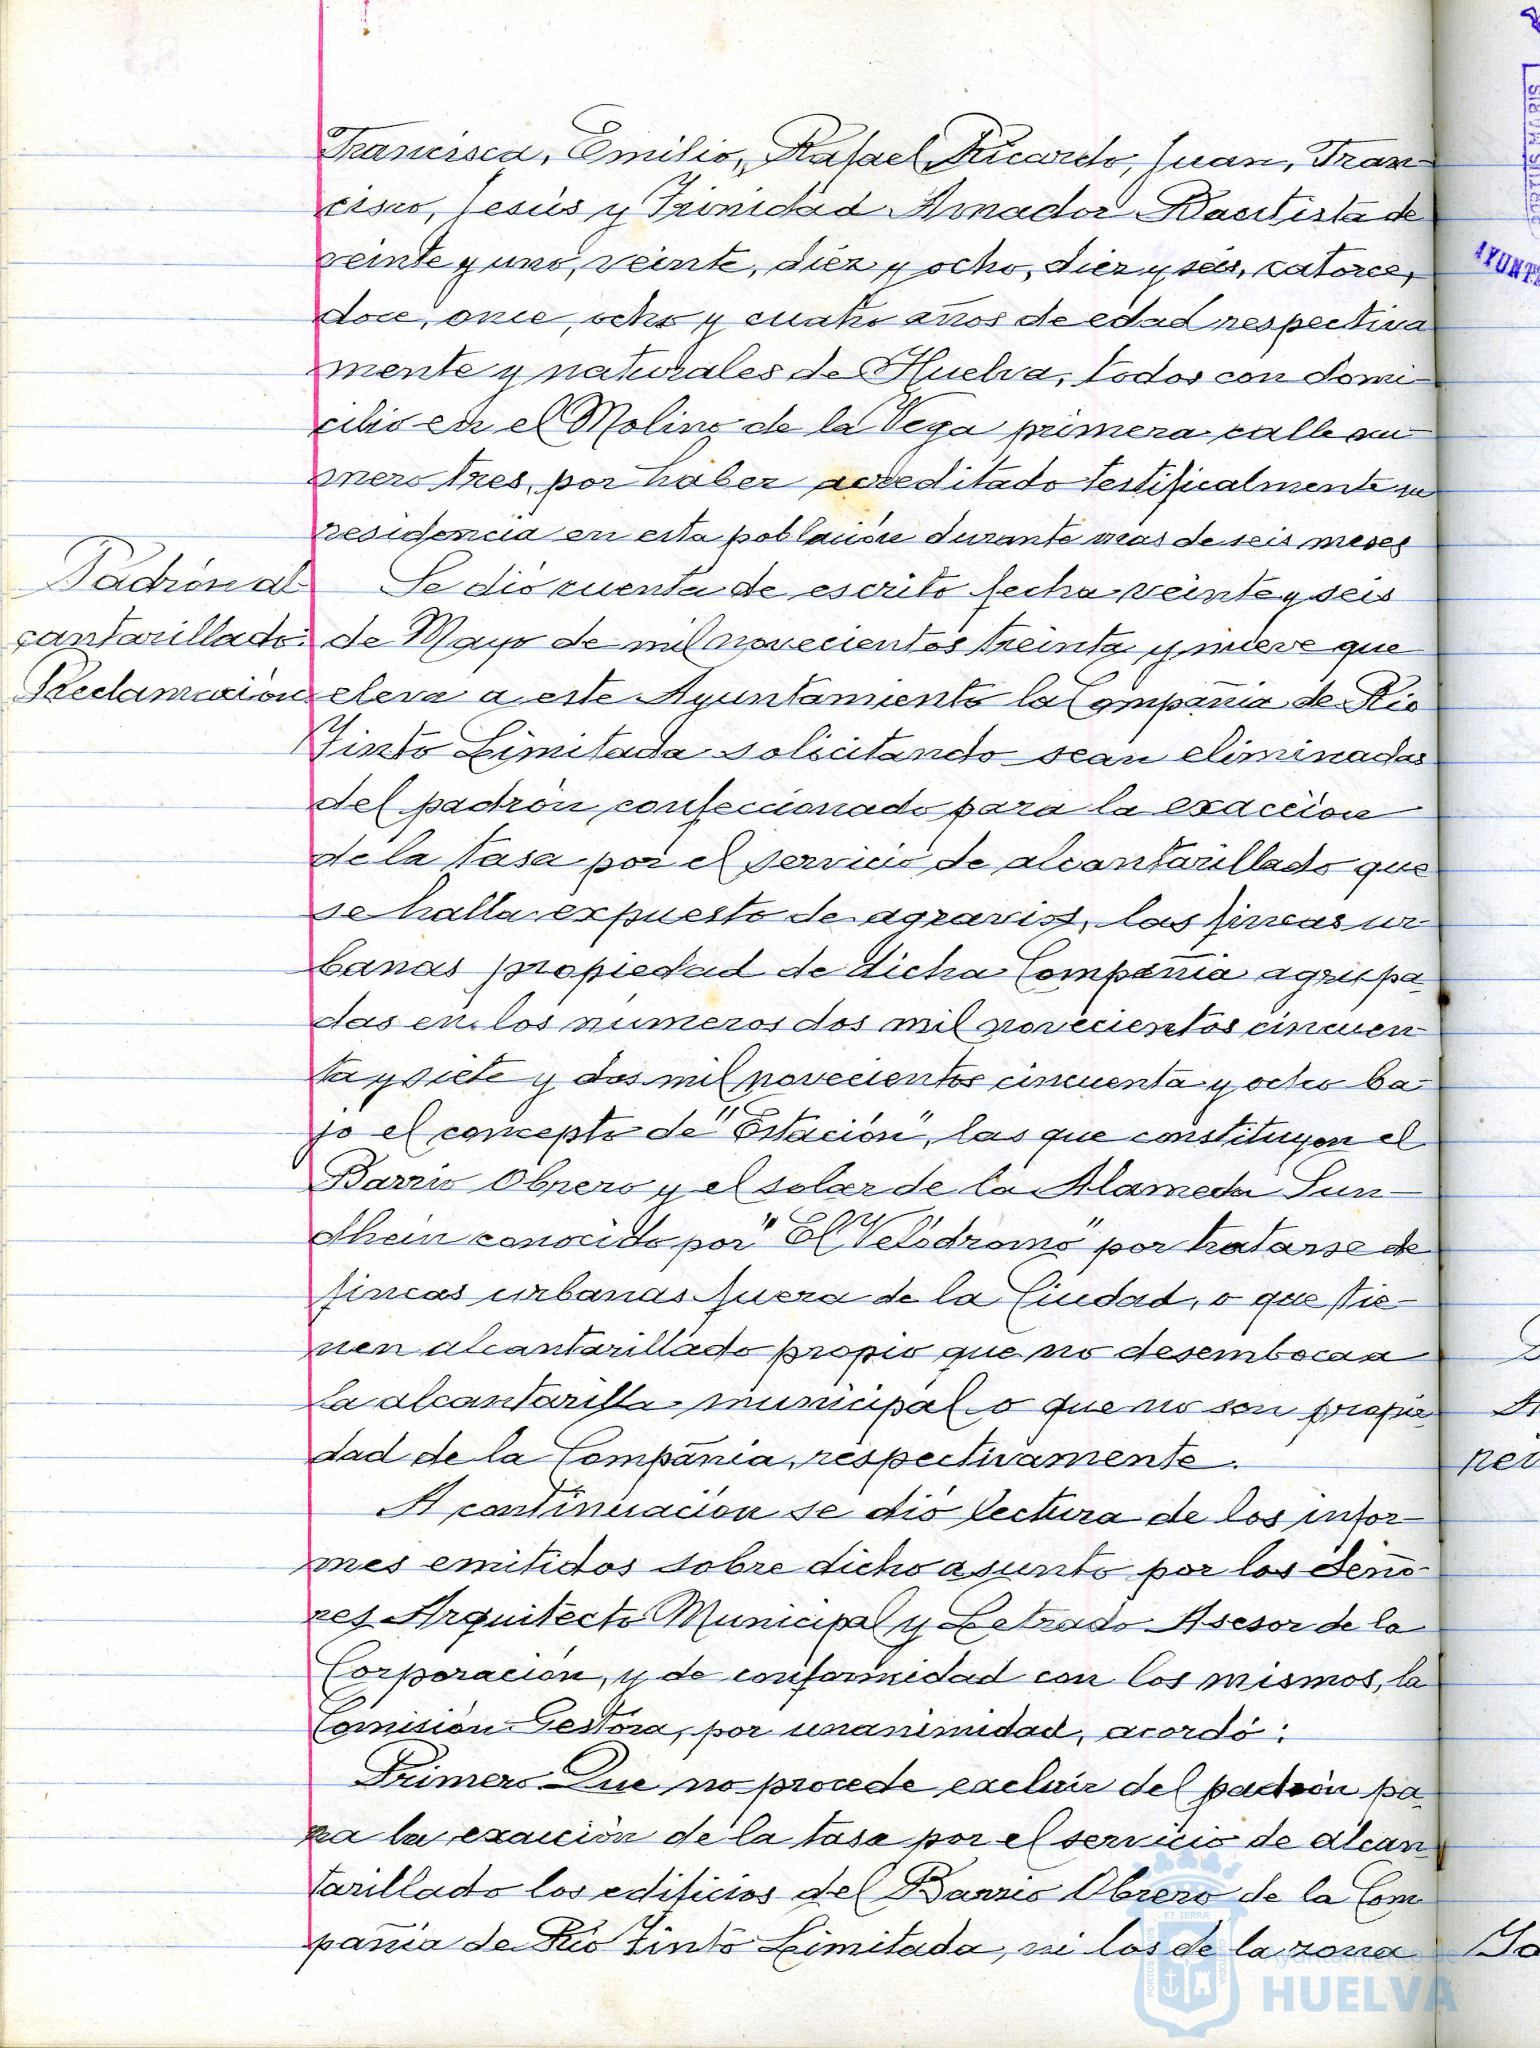 Francisca, Emilio, Rafael Ricardo, Juan, Fran-
cisco, Jesús y Trinidad Amador Bautista de
veinte y uno, veinte, diéz y ocho, diez y seis, catorce,
doce, once, ocho y cuatro años de edad respectiva
mente y naturales de Huelva, todos con domi-
cilio en el Molino de la Vega primera calle nú-
mero tres, por haber acreditado testificalmente su
residencia en esta población durante mas de seis meses
Padrón al
cantarillado.
Reclamación
Se dió cuenta de escrito fecha veinte y seis
de Mayo de mil novecientos treinta y nueve que
eleva a este Ayuntamiento la Compañia de Rio
Tinto Limitada solicitando sean eliminadas
del padrón confeccionado para la exacción
de la tasa por el servicio de alcantarillado que
se halla expuesto de agravios, las fincas ur-
banas propiedad de dicha Compañia agrupa-
das en los números dos mil novecientos cincuen-
ta y siete y dos mil novecientos cincuenta y ocho ba-
jo el concepto de "Estación", las que constituyen el
Barrio Obrero y el solar de la Alameda Sun-
dhein conocido por "El Velódromo" por tratarse de
fincas urbanas fuera de la Ciudad, o que tie-
nen alcantarillado propio que no desemboca a
la alcantarilla municipal o que no son propie-
dad de la Compañia, respectivamente.
A continuación se dió lectura de los infor-
mes emitidos sobre dicho asunto por los Seño-
res Arquitecto Municipal y Letrado Asesor de la
Corporación, y de conformidad con los mismos, la
Comisión Gestora, por unanimidad, acordó:
Primero Que no procede excluir del padrón pa-
ra la exacción de la tasa por el servicio de alcan
tarillado los edificios del Barrio Obrero de la Com
pañia de Rio Tinto Limitada, ni los de la zona
Ayuntamiento de
HUELVA
PORTUS MARIS
AYUNT